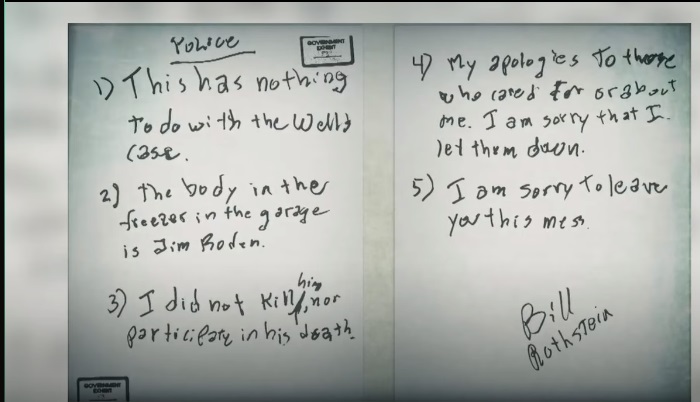 Police
GOVERNMENT
EXHIBIT
1) This has nothing
to do with the Wells
case.
2) the body in the
freezer in the garage
is Jim Roden.
him
3) I did not kill, nor
participate in his death.
GOVERNMENT
EXHIBIT
4) My apologies to those
who cared for or about
me. I am sorry that I
let them down.
5) I am sorry to leave
you this mess.
Bill
Rothstein